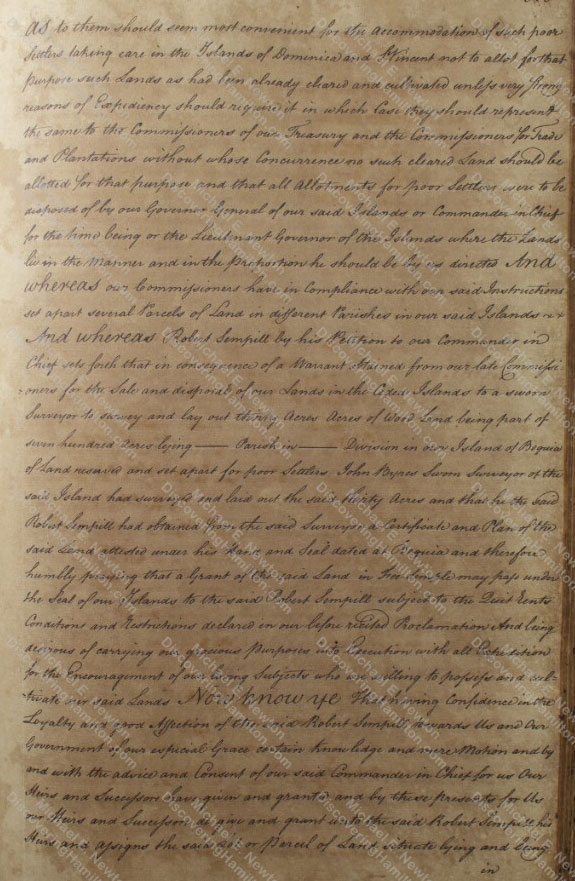 as to them should seem most convenient for the accommodation of such poor
Settlers taking care in the Islands of Dominica and St Vincent not to allot for that
purpose such Lands as had been already cleared and cultivated unless very strong
reasons of Expediency should require it in which Case they should represent
the same to the Commissioners of our Treasury and the Commissioners for Trade
and Plantations without whose Concurrence no such cleared Land should be
allotted for that purpose and that all Allotments for poor Settlers were to be
disposed of by our Governor General of our said Islands or Commander in Chief
for the time being or the Lieutenant Governor of the Islands where the Lands
lie in the Manner and in the Proportion he should be by us directed And
whereas our Commissioners have in Compliance with our said Instructions
set apart several Parcels of Land in different Parishes in our said Islands
And whereas Robert Sempill by his Petition to our Commander in
Chief sets forth that in consequence of a Warrant obtained from our late Commissi
oners for the Sale and disposal of our Lands in the Ceded Islands to a sworn
Surveyor to survey and lay out thirty Acres Acres of Wood Land being part of
seven hundred acres lying —— Parish in —— Division in our Island of Bequia
of Land reserved and set apart for poor Settlers John Byres Sworn Surveyor of the
said Island had surveyed and laid out the said thirty Acres and that he the said
Robert Sempill had obtained from the said Surveyor a Certificate and Plan of the
said Land attested under his Hand and Seal dated at Bequia and therefore
humbly praying that a Grant of the said Land in Free Simple may pass under
the Seal of our Islands to the said Robert Sempill subject to the Quit Rents
Conditions and Restrictions declared in our before recited Proclamation And being
desirous of carrying our gracious Purposes into Execution with all Expedition
for the Encouragement of our loving Subjects who are willing to possess and cul-
tivate our said Lands Now know ye That having Confidence in the
Loyalty and good Affection of the said Robert Sempill towards Us and Our
Government of our especial Grace certain knowledge and mere Motion and by
and with the advice and Consent of our said Commander in Chief for us Our
Heirs and Successors have given and granted and by these presents for Us
our Heirs and Successors do give and grant unto the said Robert Sempill his
Heirs and assigns the said Lot or Parcel of Land situate lying and being
in